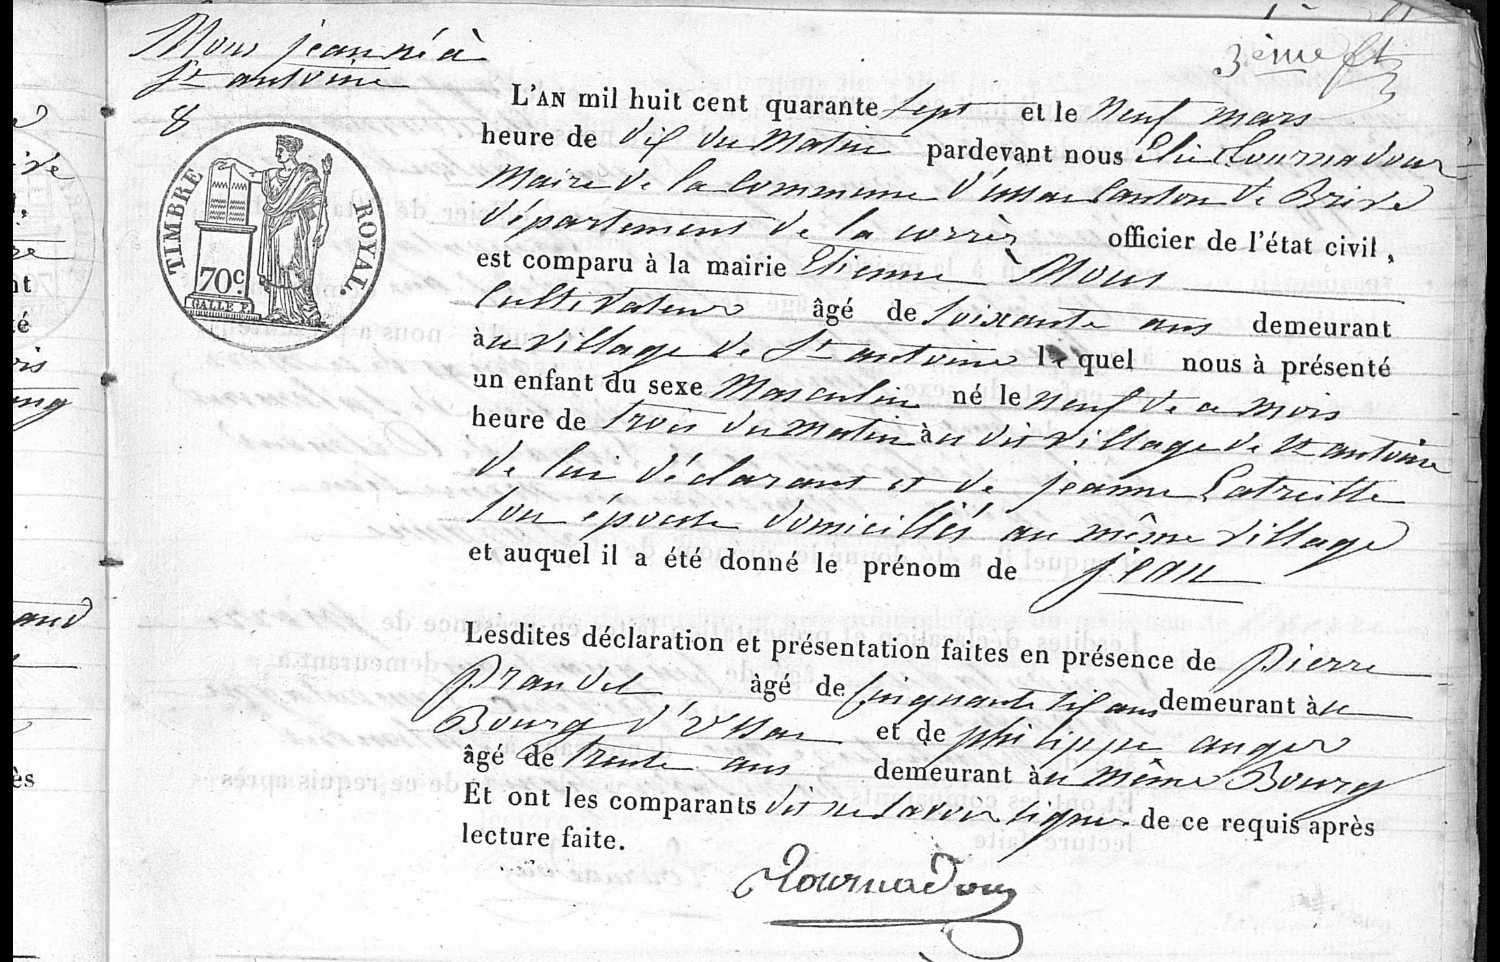 Mous jean né à
St antoine
8
3ème ft
TIMBRE ROYAL.
70c.
GALLE F.
L'AN mil huit cent quarante sept et le neuf mars
heure de dix du matin pardevant nous Elie Tournadour
Maire de la commune d'ussac Canton de Brive
département de la corrèz officier de l'état civil,
est comparu à la mairie Etienne Mous
Cultivateur âgé de soixante ans demeurant
à u village de St antoine le quel nous à présenté
un enfant du sexe Masculin né le neuf de ce mois
heure de trois du matin à u dit village de St antoine
de lui déclarant et de jeanne Latreille
son épouse domiciliés au même village
et auquel il a été donné le prénom de jean
Lesdites déclaration et présentation faites en présence de pierre
âgé de Cinquante six ans demeurant à u
Bourg d'Ussac et de philippe auger
âgé de trente ans demeurant à u même Bourg
Et ont les comparants dit ne savoir signer de ce requis après
lecture faite.
Tournadour